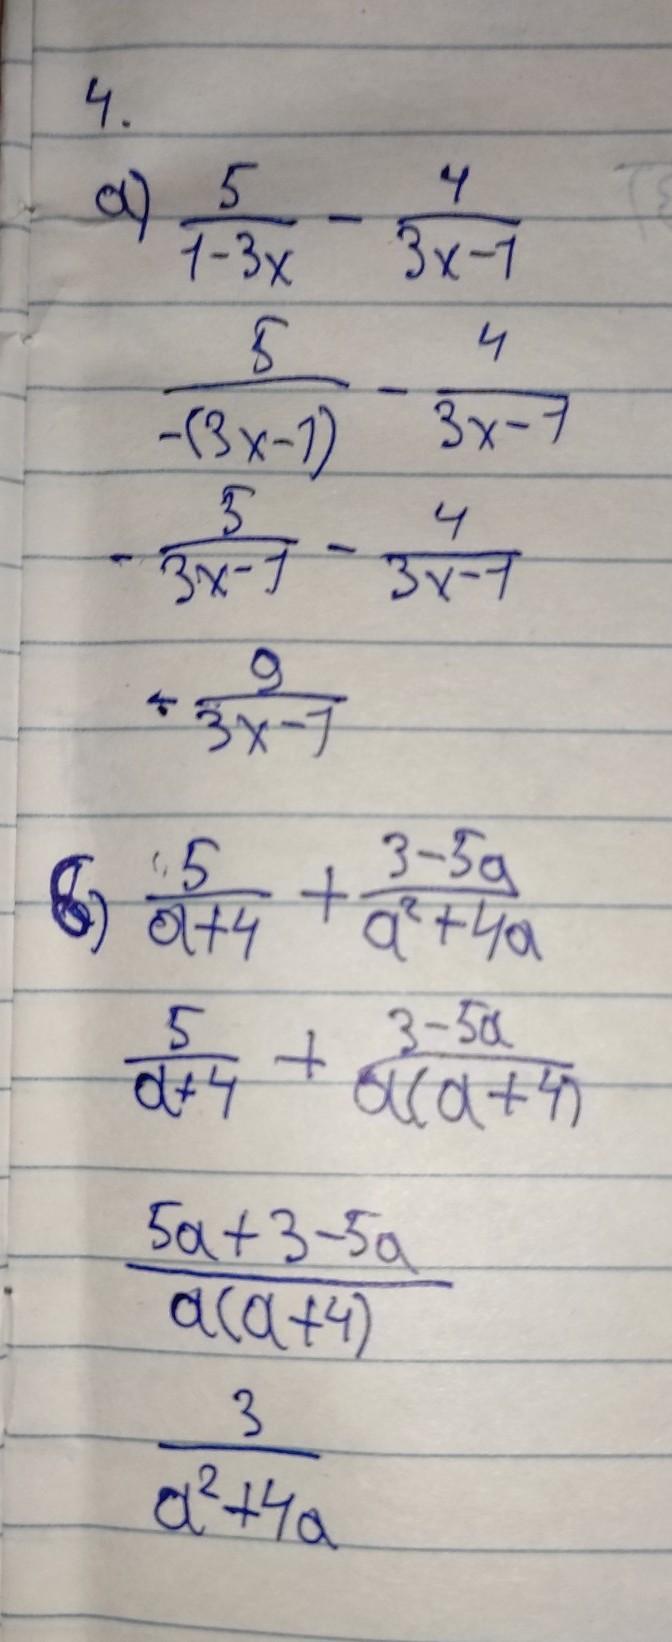 4.
а) 5/(1-3x) - 4/(3x-1)
5/(-(3x-1)) - 4/(3x-1)
- 5/(3x-1) - 4/(3x-1)
- 9/(3x-1)
б) 5/(a+4) + (3-5a)/(a²+4a)
5/(a+4) + (3-5a)/(a(a+4))
(5a+3-5a)/(a(a+4))
3/(a²+4a)